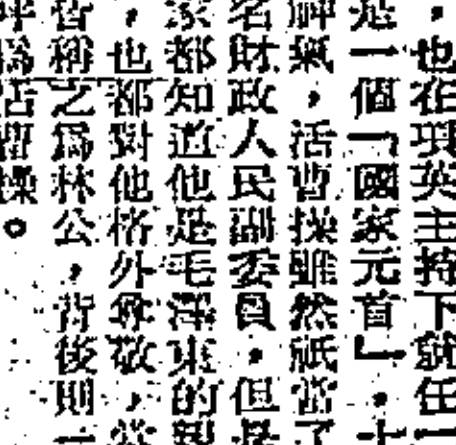 ，也在項英主持下就任一
是一個「國家元首」，十
神氣，活曹操雖然祇當了
名財政人民副委員，但是
家都知道他是毛澤東的親
，也都對他格外尊敬，當
皆稱之爲林公，背後則一
呼爲活曹操。